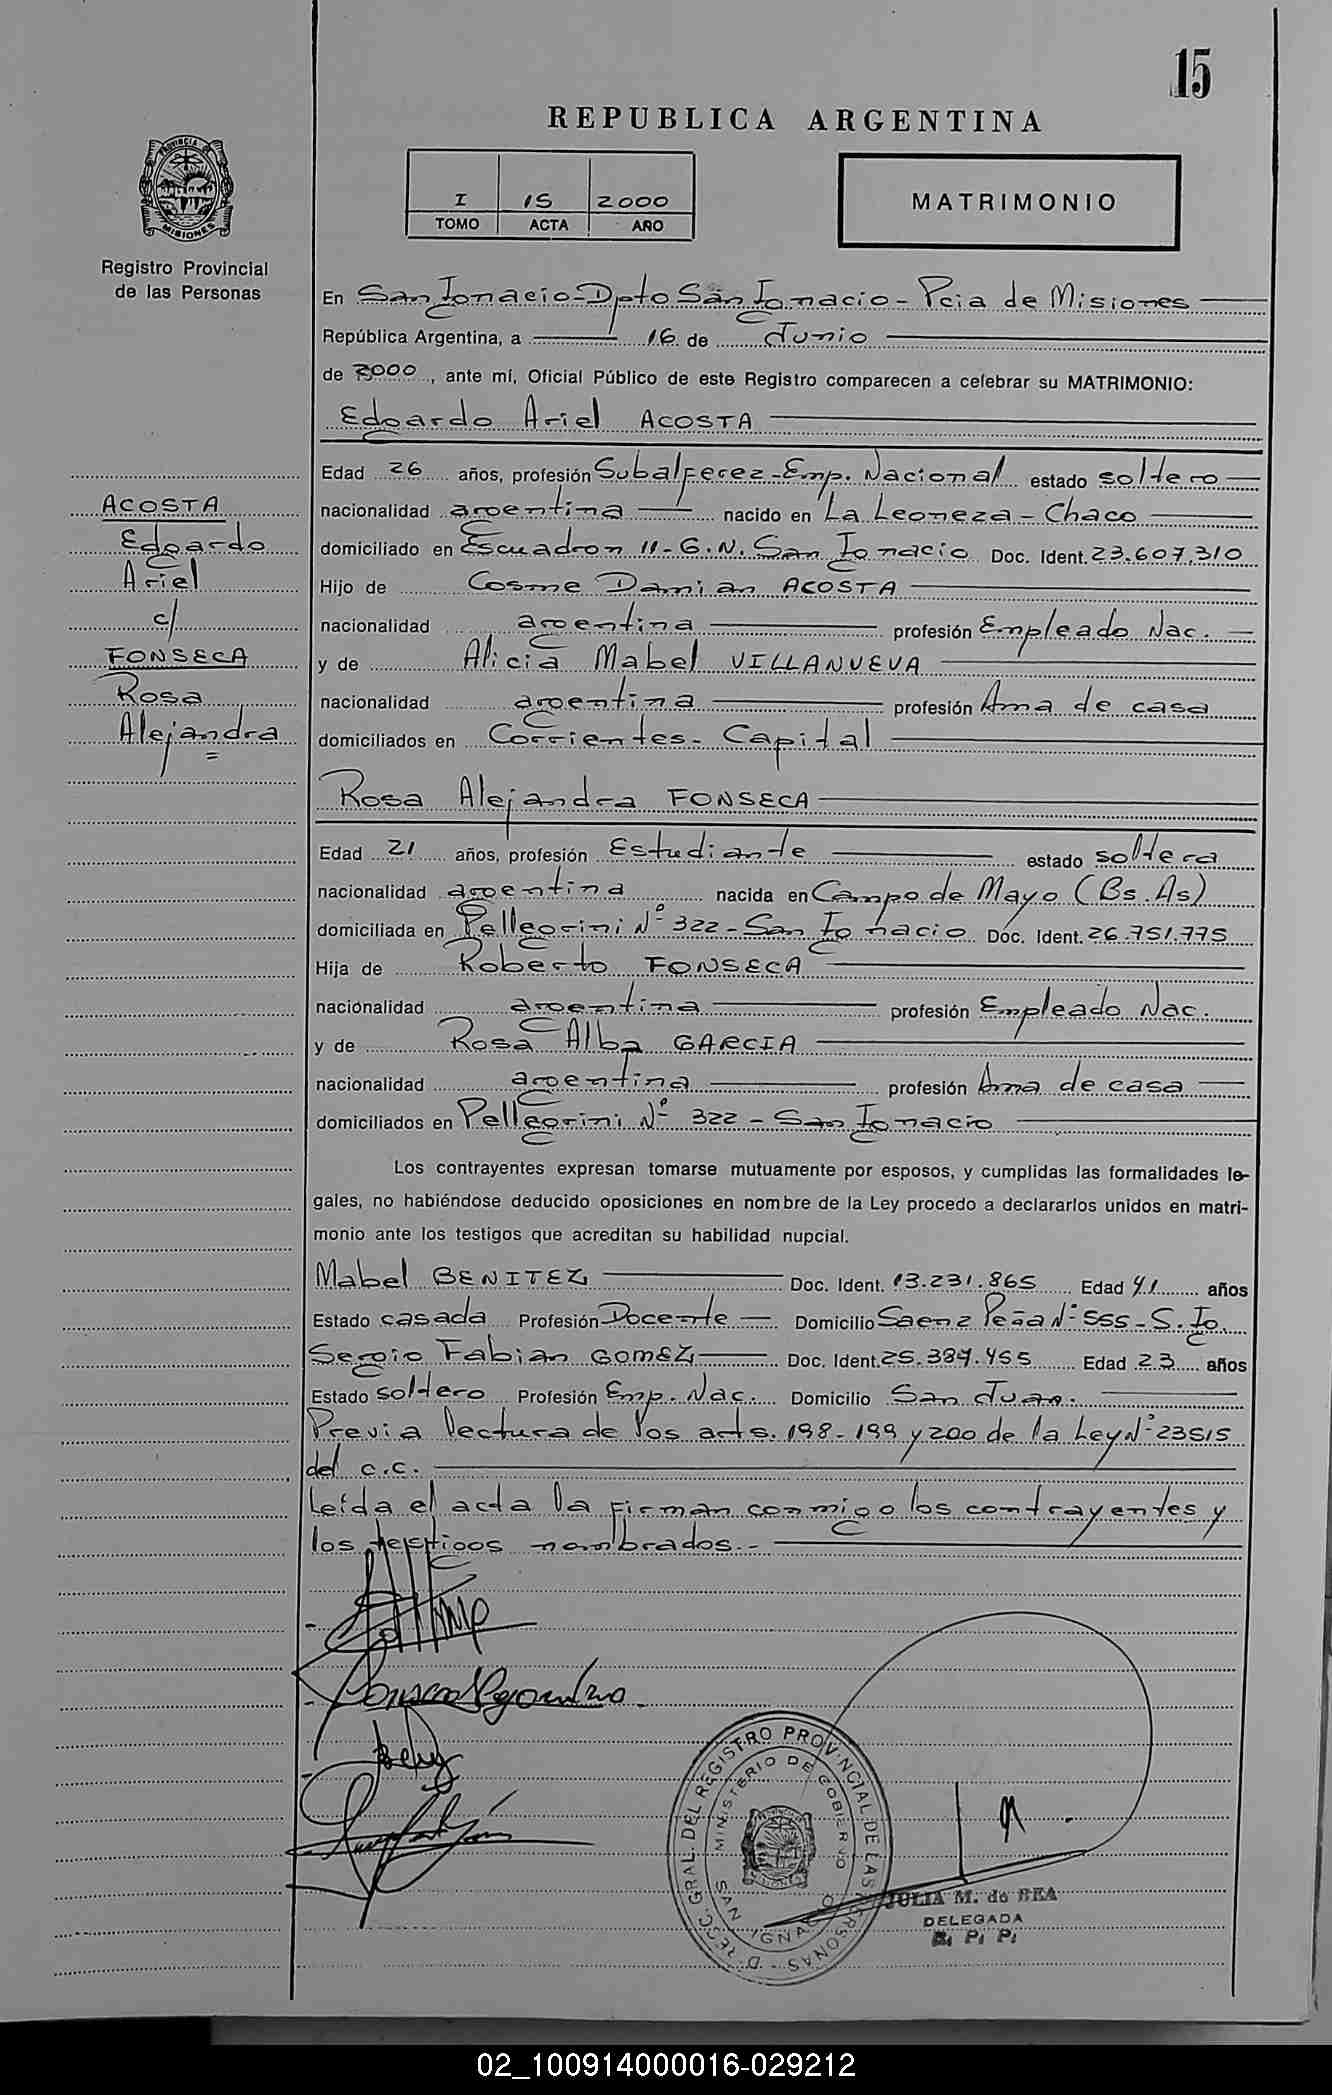 15
REPUBLICA ARGENTINA
I 15 2000
TOMO ACTA AÑO
MATRIMONIO
PROVINCIA DE
MISIONES
Registro Provincial
de las Personas
En San Ignacio-Dpto San Ignacio - Pcia de Misiones
República Argentina, a 16 de Junio
de 2000, ante mí, Oficial Público de este Registro comparecen a celebrar su MATRIMONIO:
Edgardo Ariel ACOSTA
Edad 26 años, profesión Subalferez-Emp. Nacional estado soltero
nacionalidad argentina nacido en La Leoneza - Chaco
domiciliado en Escuadron 11-G.N. San Ignacio Doc. Ident. 23.607.310
Hijo de Cosme Damian ACOSTA
nacionalidad argentina profesión Empleado Nac.
y de Alicia Mabel VILLANUEVA
nacionalidad argentina profesión Ama de casa
domiciliados en Corrientes - Capital
ACOSTA
Edgardo
Ariel
c/
FONSECA
Rosa
Alejandra
Rosa Alejandra FONSECA
Edad 21 años, profesión Estudiante estado soltera
nacionalidad argentina nacida en Campo de Mayo (Bs.As)
domiciliada en Pellegrini Nº 322 - San Ignacio Doc. Ident. 26.751.775
Hija de Roberto FONSECA
nacionalidad argentina profesión Empleado Nac.
y de Rosa Alba GARCIA
nacionalidad argentina profesión Ama de casa
domiciliados en Pellegrini Nº 322 - San Ignacio
Los contrayentes expresan tomarse mutuamente por esposos, y cumplidas las formalidades le-
gales, no habiéndose deducido oposiciones en nombre de la Ley procedo a declararlos unidos en matri-
monio ante los testigos que acreditan su habilidad nupcial.
Mabel BENITEZ Doc. Ident. 13.231.865 Edad 41 años
Estado casada Profesión Docente Domicilio Saenz Peña Nº 555 - S. Ig.
Sergio Fabian GOMEZ Doc. Ident. 25.389.455 Edad 23 años
Estado soltero Profesión Emp. Nac. Domicilio San Juan.
Previa lectura de los arts. 198-199 y 200 de la Ley Nº 23515
del C.C.
Leída el acta la firman conmigo los contrayentes y
los testigos nombrados.-
D RECC. GRAL. DEL REGISTRO PROVINCIAL DE LAS PERSONAS
MINISTERIO DE GOBIERNO
SAN IGNACIO
JULIA M. de REA
DELEGADA
R. P. P.
02_100914000016-029212